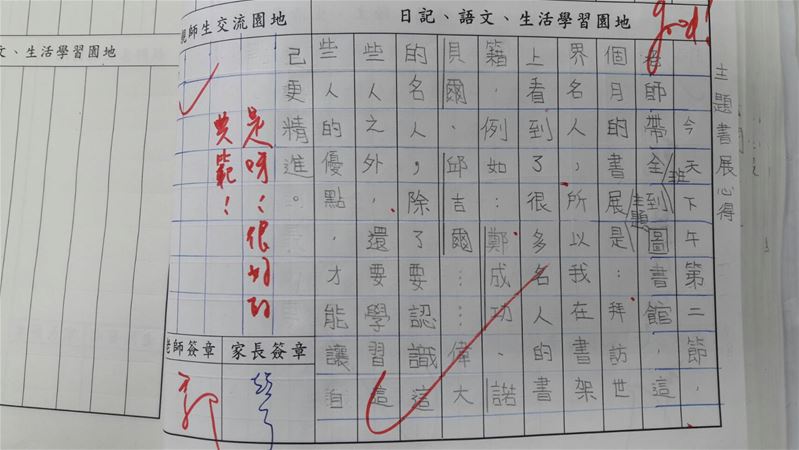 日記、語文、生活學習園地
親師生交流園地
文、生活學習園地
good!
主題書展心得
今天下午第二節，
老師帶全班到圖書館，這
個月的書展主題是：拜訪世
界名人，所以我在書架
上看到了很多名人的書
籍，例如：鄭成功、諾
貝爾、邱吉爾……偉大
的名人，除了要認識這
些人之外，還要學習這
些人的優點，才能讓自
己更精進。
是呀！很好的
典範！
老師簽章
家長簽章
郭